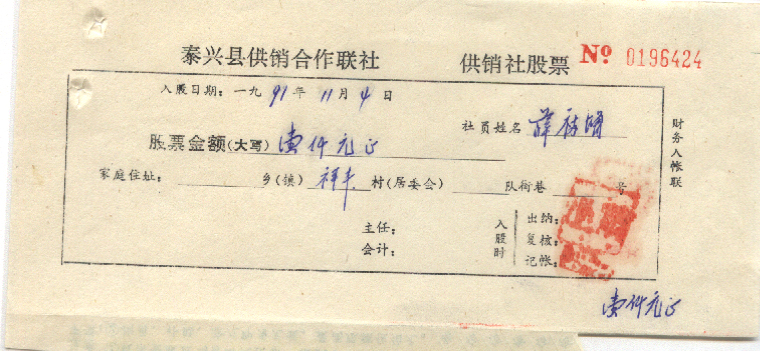 泰兴县供销合作联社 供销社股票 Nº 0196424
入股日期：一九91年11月4日
社员姓名 薛
股票金额(大写) 壹仟元正
家庭住址： 乡(镇) 祥丰 村(居委会) 队街巷 号
主任：
会计：
入股时
出纳：
复核：
记帐：
财务入帐联
壹仟元正